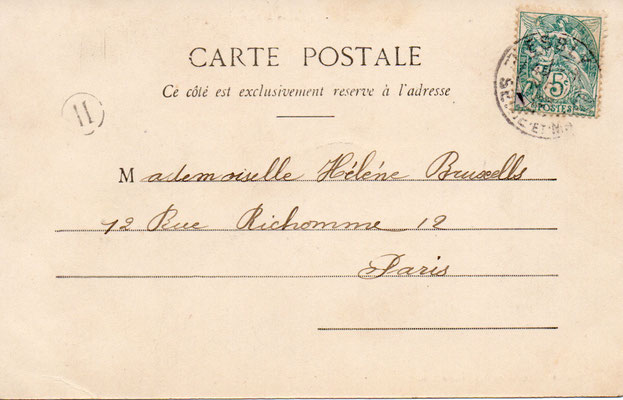 CARTE POSTALE
Ce côté est exclusivement reserve à l'adresse
11
Mademoiselle Hélène Bruxells
12 Rue Richomme 12
Paris
ESBLY
SEINE-ET-MNE
5c
POSTES